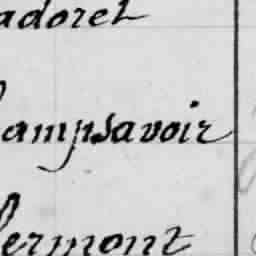 adoret
ampsavoir
lermont